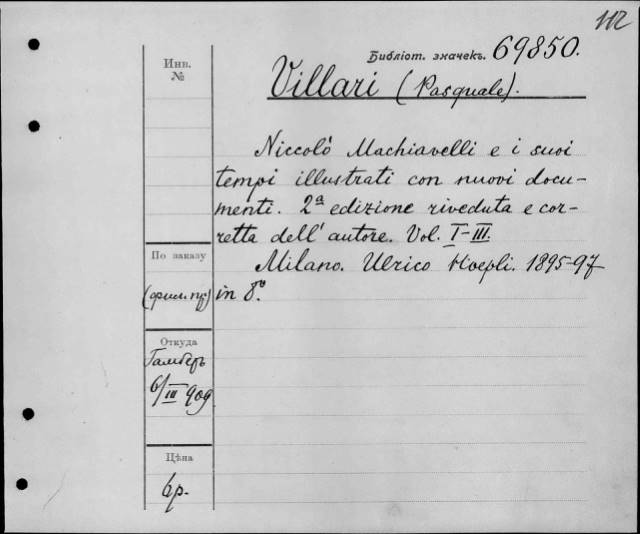 112
Библіот. значекъ. 69850.
Инв.
№
Villari (Pasquale).
Niccolò Machiavelli e i suoi
tempi illustrati con nuovi docu-
menti. 2ª edizione riveduta e cor-
retta dell' autore. Vol. I-III.
Milano. Ulrico Hoepli. 1895-97
in 8º.
По заказу
(фил. пр)
Откуда
Гамберъ
6/III 909
Цѣна
6р.